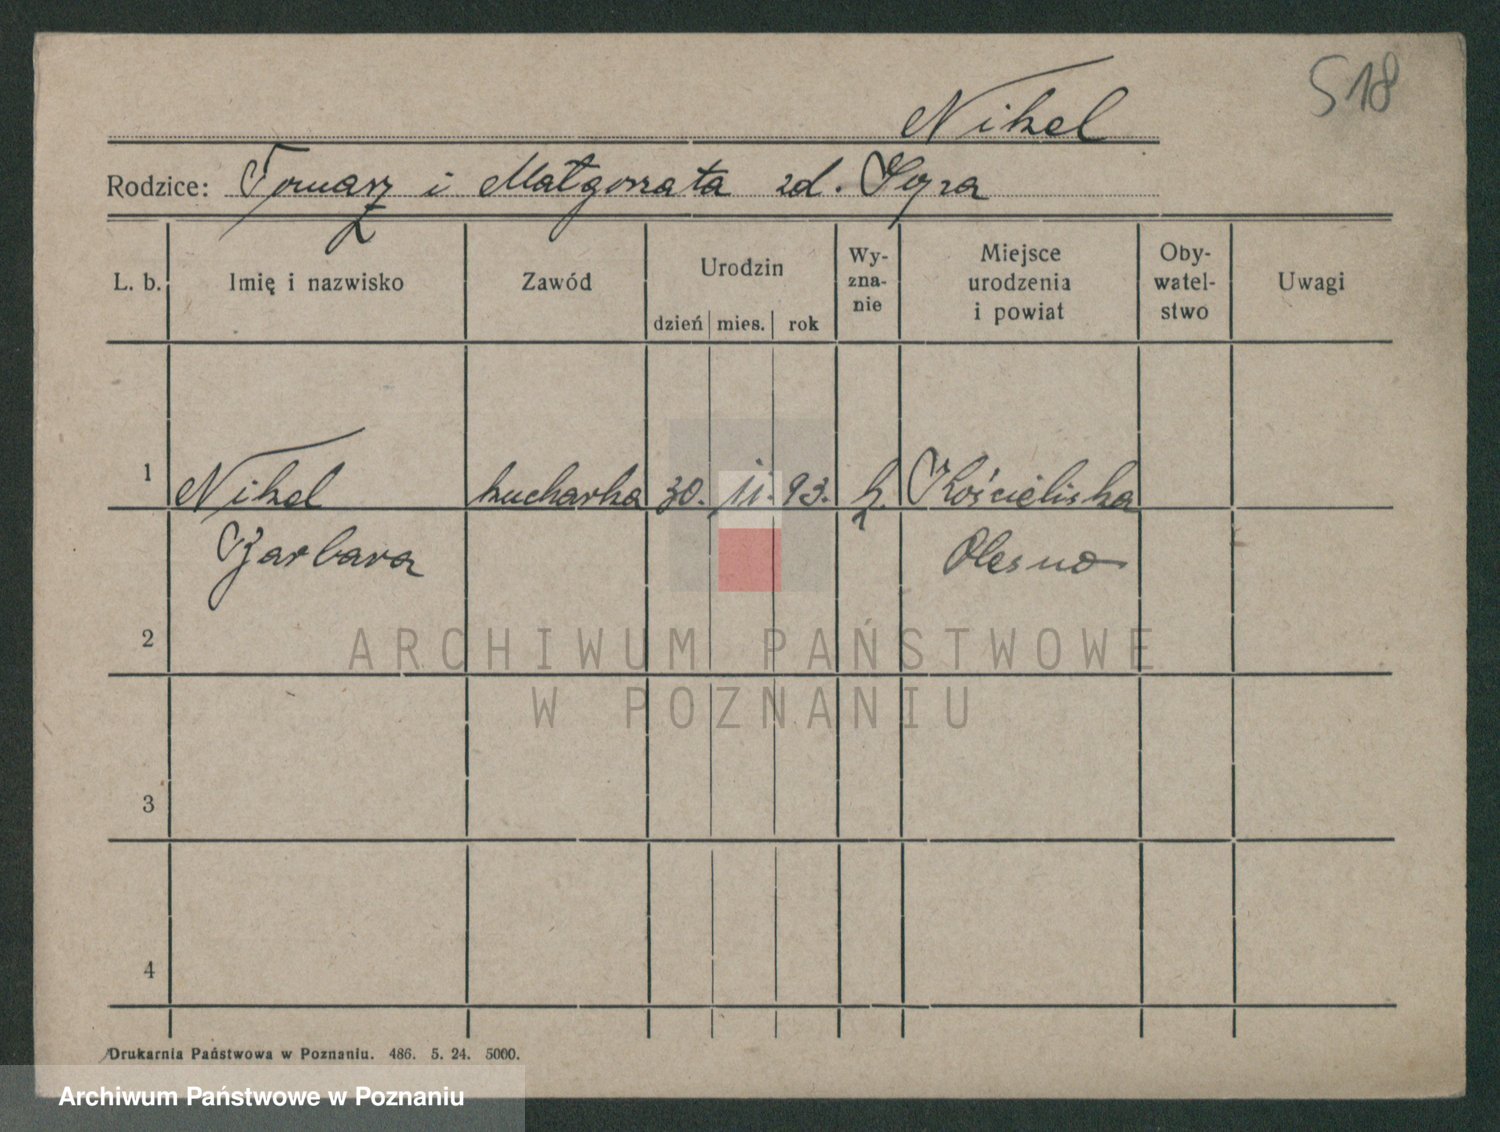 518
Nikel
Rodzice: Tomasz i Małgorzata zd.
L. b. Imię i nazwisko Zawód Urodzin dzień mies. rok Wy-zna-nie Miejsce urodzenia i powiat Oby-watel-stwo Uwagi
1 Nikel kucharka 30. 11. 93. k. Kościeliska
Barbara Olesno
2
ARCHIWUM PAŃSTWOWE
W POZNANIU
3
4
Drukarnia Państwowa w Poznaniu. 486. 5. 24. 5000.
Archiwum Państwowe w Poznaniu